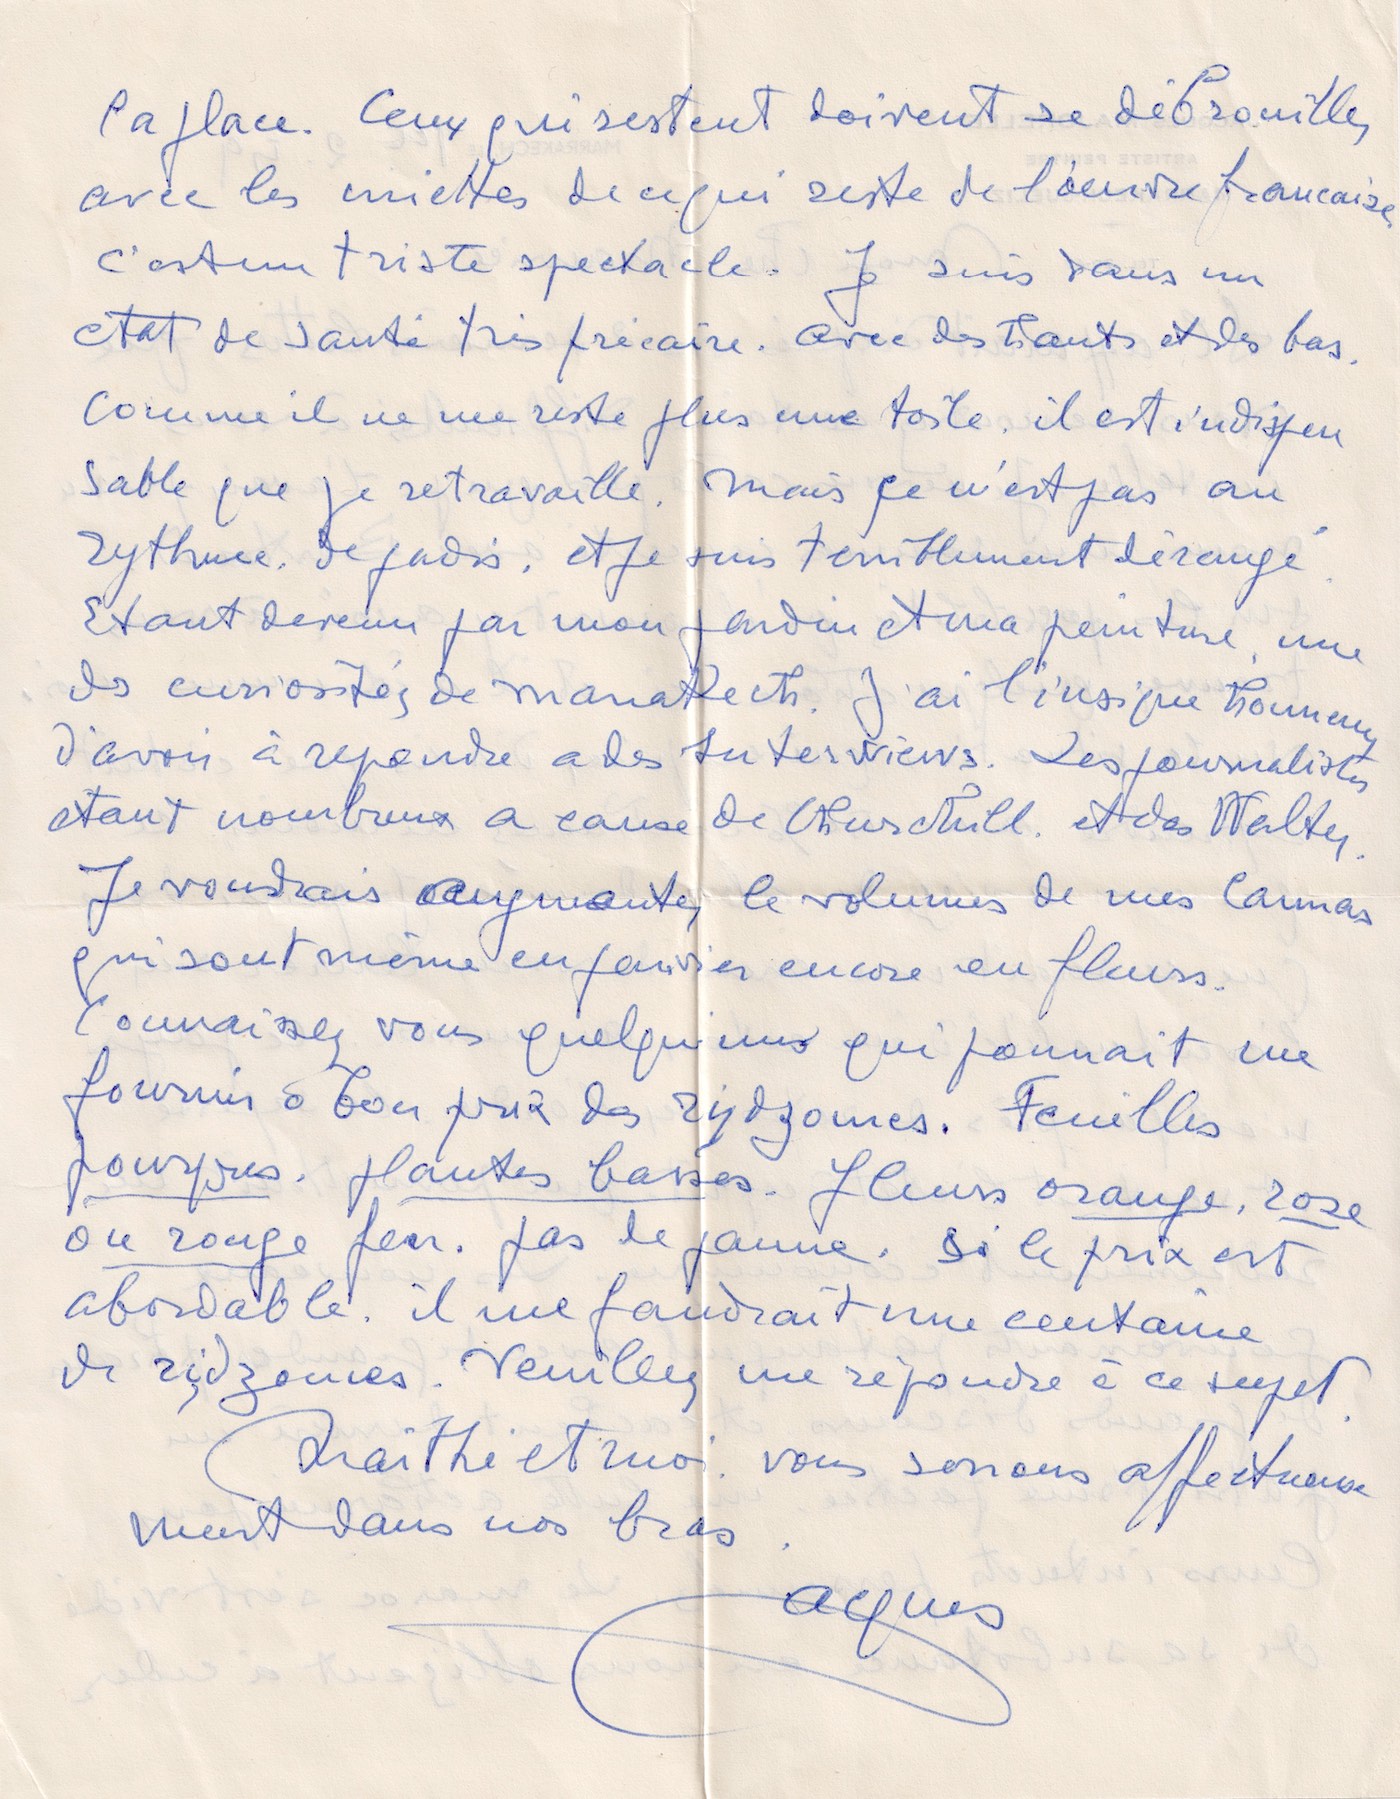 la place. Ceux qui restent doivent se débrouiller
avec les miettes de ce qui reste de l'oeuvre francaise,
c'est un triste spectacle. Je suis dans un
etat de santé très précaire. avec des hauts et des bas.
Comme il ne me reste plus une toile, il est indispen
sable que je retravaille. Mais ce n'est pas au
rythme de jadis, et je suis terriblement dérangé.
Etant devenu par mon jardin et ma peinture, une
des curiosités de Marrakech. J'ai l'insigne honneur
d'avoir à repondre a des Interviews. Les journalistes
etant nombreux a cause de Churchill. et des
Je voudrais augmenter le volumes de mes Cannas
qui sont même en janvier encore en fleurs.
Connaissez vous quelqu'uns qui pourrait me
fournir à bon prix des rydzomes. Feuilles
pourpres. plantes basses. fleurs orange, rose
ou rouge feu. pas de jaune. Si le prix est
abordable. il me faudrait une centaine
de ridzomes. Veuillez me répondre à ce sujet.
Maithé et moi. vous serrons affectueuse
ment dans nos bras.
Jacques